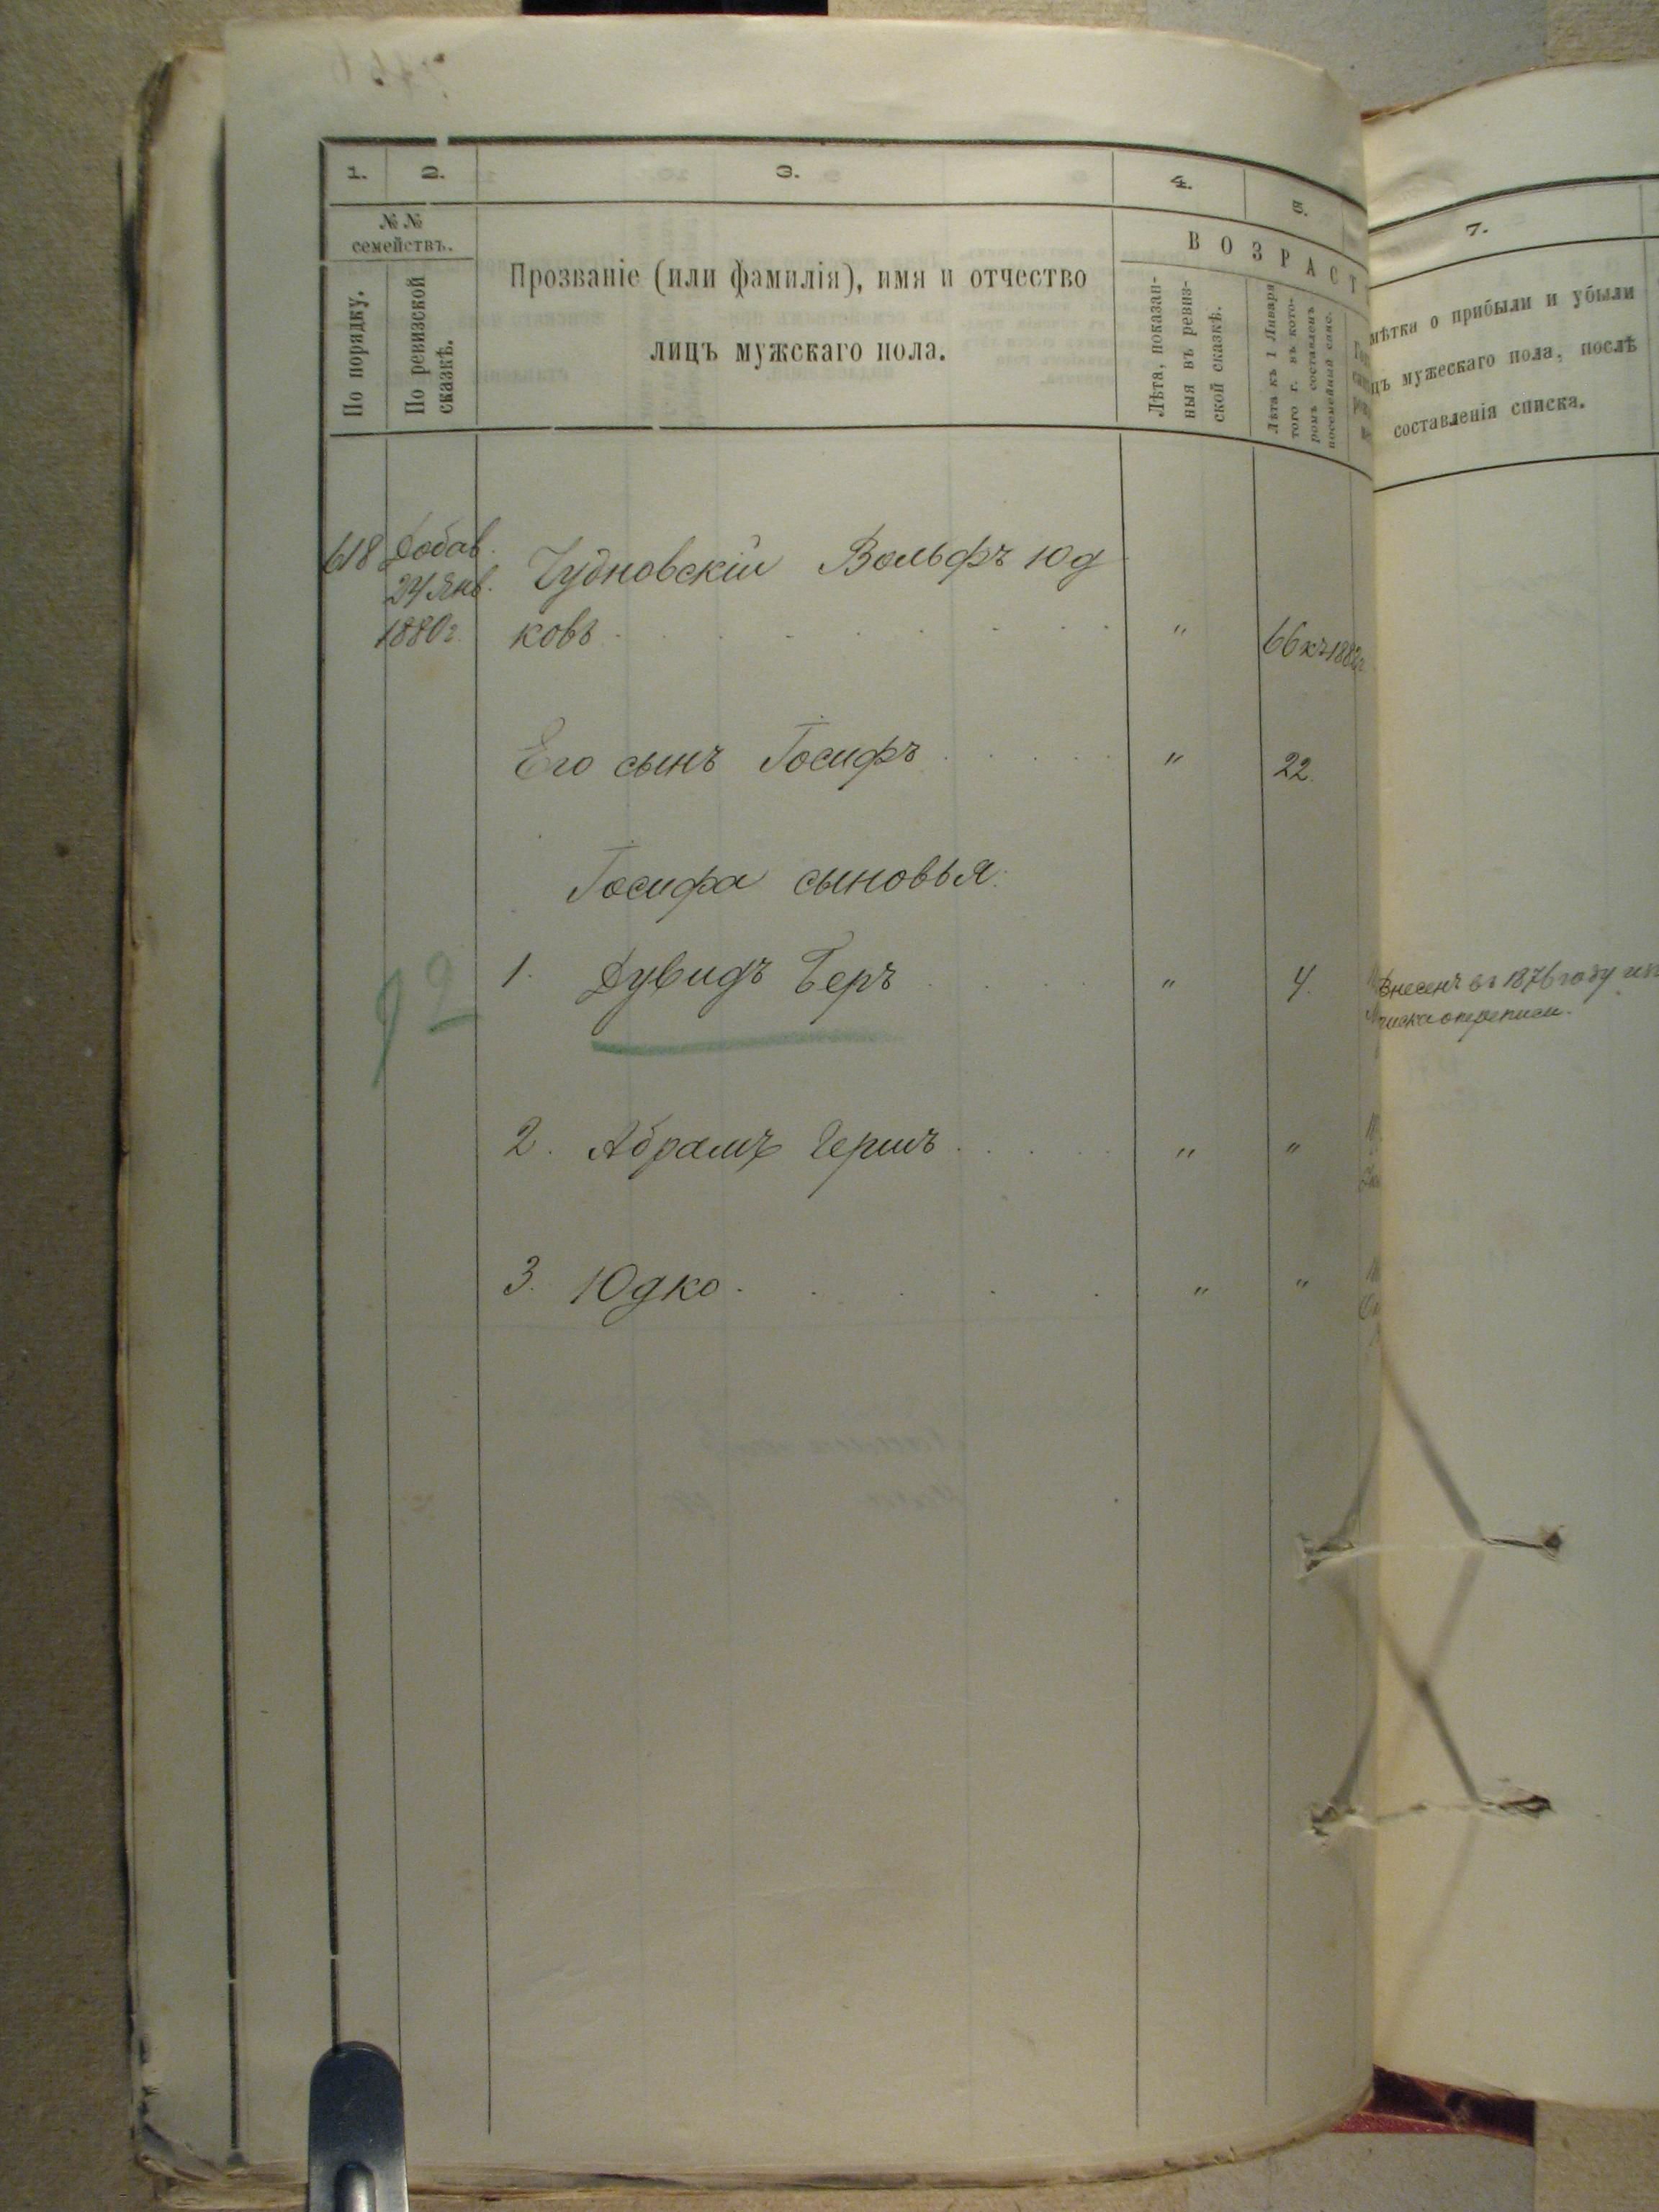 1. 2. 3. 4. 5.
№ № семействъ.
По порядку.
По ревизской сказкѣ.
Прозваніе (или фамилія), имя и отчество
лицъ мужскаго пола.
ВОЗРАСТ
Лѣта, показан-
ныя въ ревиз-
ской сказкѣ.
Лѣта къ 1 Января
того г. въ кото-
ромъ составленъ
посемейный спис.
7.
мѣтка о прибыли и убыли
цъ мужескаго пола, послѣ
составленія списка.
618 Добав. Чудновскій Вольфъ Юд
24 Янв.
1880 г. ковъ " 66 къ 1882 г
Его сынъ Іосифъ " 22.
Іосифа сыновья:
92
1. Дувидъ Беръ " 4. Внесенъ въ 1876 году
2. Абрамъ Гершъ " "
3. Юдко " "